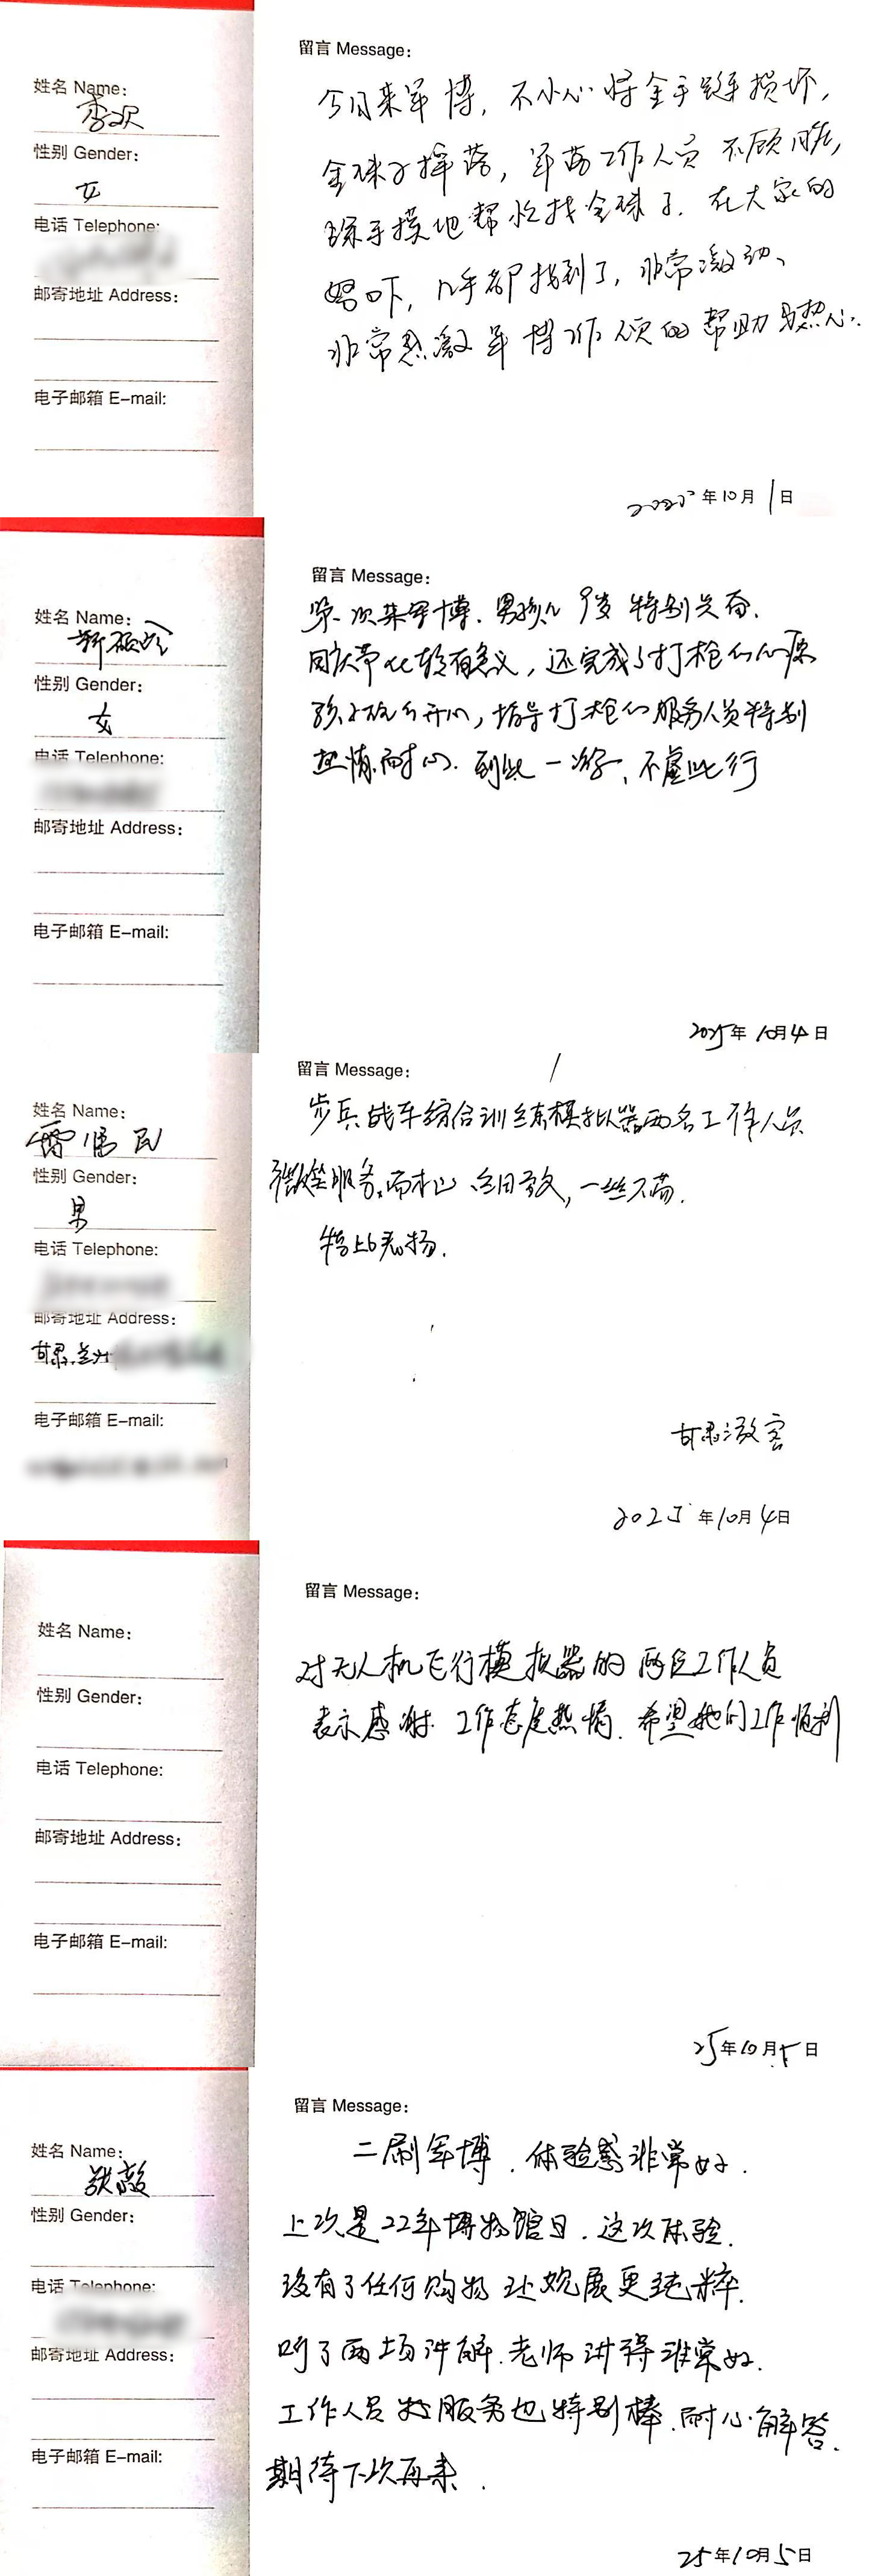 留言 Message:
姓名 Name:
李欢
性别 Gender:
女
电话 Telephone:
邮寄地址 Address:
电子邮箱 E-mail:
今日来军博，不小心将金手链损坏，
金珠子掉落，军博工作人员不顾脏，
徒手摸地帮忙找金珠子．在大家的
努力下，几乎都找到了，非常激动、
非常感激军博工作人员的帮助与热心．
2025年10月1日
留言 Message:
姓名 Name:
性别 Gender:
女
电话 Telephone:
邮寄地址 Address:
电子邮箱 E-mail:
第一次来军博．男孩儿9岁特别兴奋．
国庆带比较有意义，还完成了打枪的心愿
孩子玩的开心，指导打枪的服务人员特别
热情．耐心．到此一游、不虚此行
2025年10月4日
留言 Message:
姓名 Name:
雷伟民
性别 Gender:
男
电话 Telephone:
邮寄地址 Address:
甘肃.兰州
电子邮箱 E-mail:
步兵战车综合训练模拟器两名工作人员
微笑服务．高效，一丝不苟．
特此表扬．
甘肃游客
2025年10月4日
留言 Message:
姓名 Name:
性别 Gender:
电话 Telephone:
邮寄地址 Address:
电子邮箱 E-mail:
对无人机飞行模拟器的两位工作人员
表示感谢．工作态度热情．希望她们工作顺利
25年10月5日
留言 Message:
姓名 Name:
张
性别 Gender:
电话 Telephone:
邮寄地址 Address:
电子邮箱 E-mail:
二刷军博．体验感非常好．
上次是22年博物馆日．这次体验．
没有了任何购物 让观展更纯粹．
听了两场讲解．老师讲得非常好．
工作人员的服务也特别棒．耐心解答．
期待下次再来．
25年10月5日